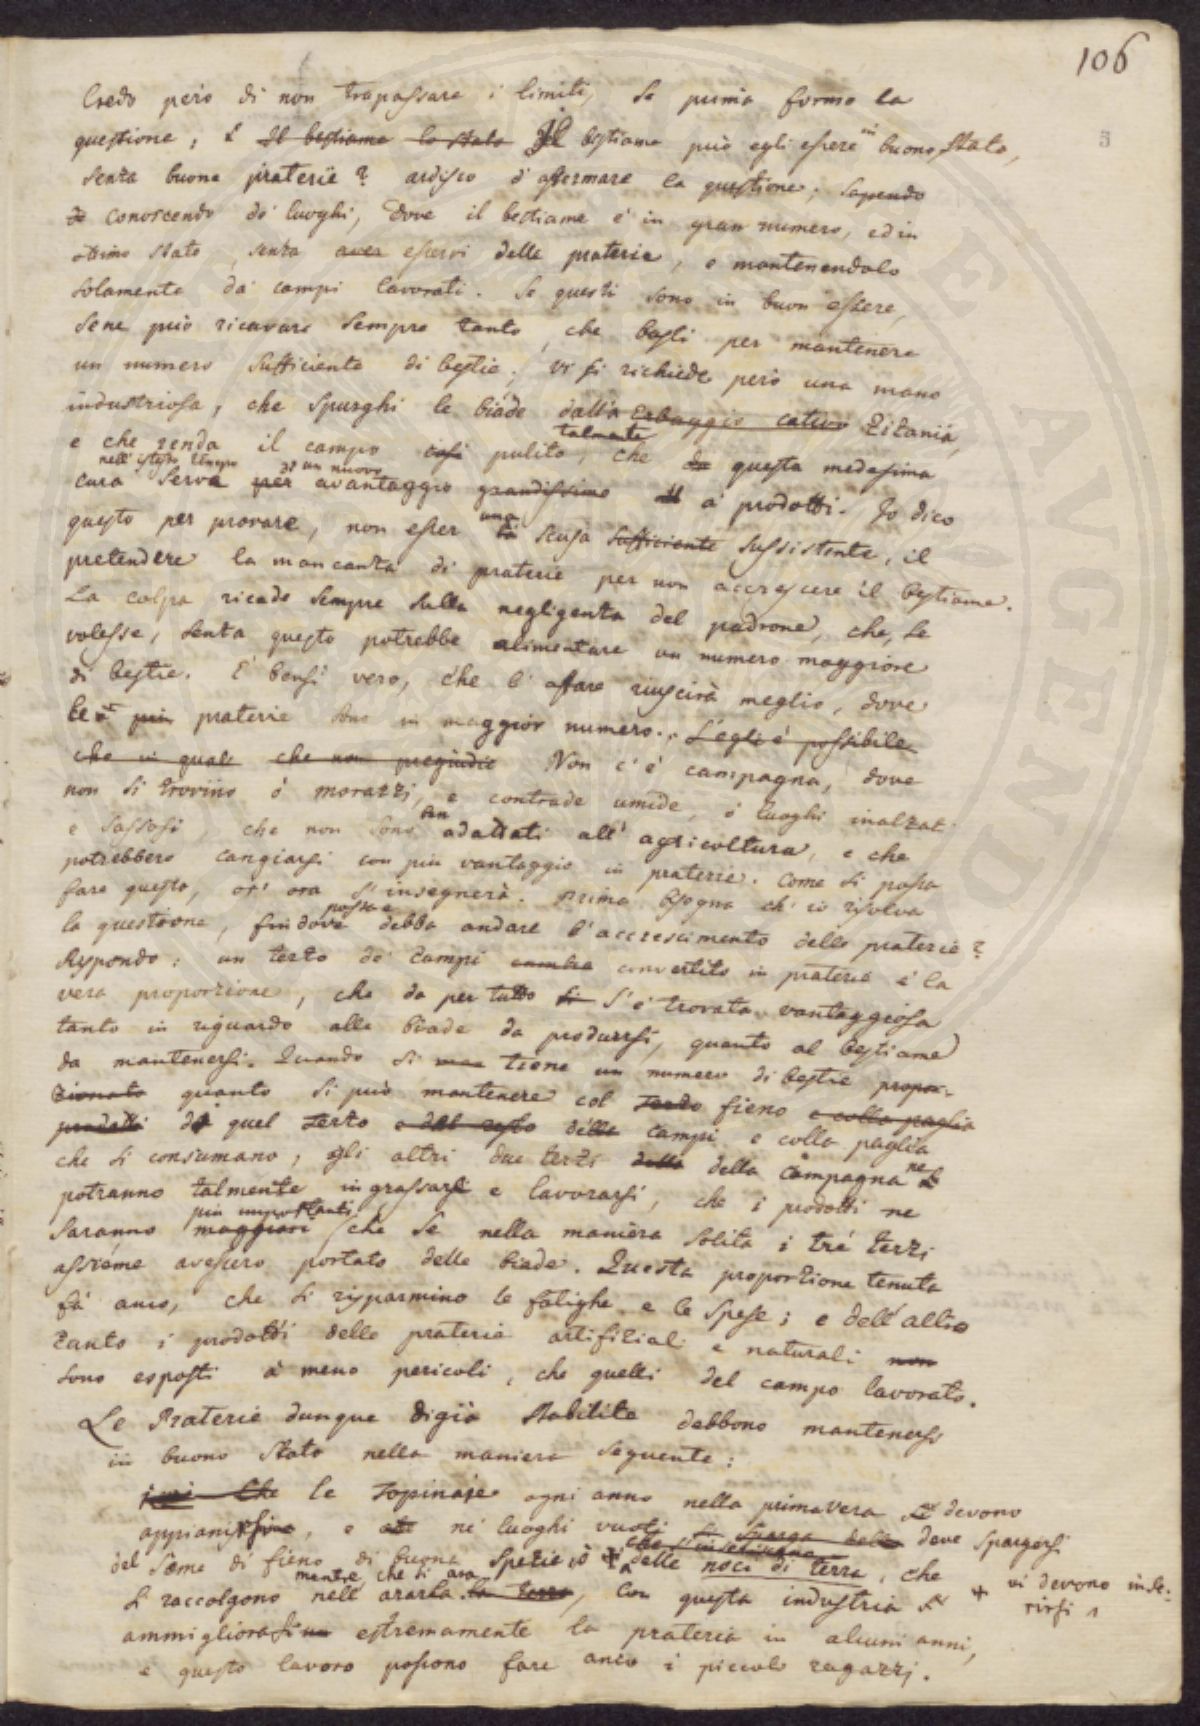 106
5
Credo però di non trapassare i limiti, se prima formo la
questione, è Il bestiame lo stato Il bestiame può egli essere in buono stato,
senza buone praterie? ardisco d'affermare la questione, sapendo
conoscendo de' luoghi, dove il bestiame è in gran numero, ed in
ottimo stato, senza aver esservi delle praterie, e mantenendolo
solamente da' campi lavorati. Se questi sono in buon essere,
sene può ricavare sempre tanto, che basti per mantenere
un numero sufficiente di bestie; vi si richiede però una mano
industriosa, che spurghi le biade dalla Erbaggio cativo Zizania,
e che renda il campo così talmente pulito, che da questa medesima
cura nell'istesso tempo serva per di un nuovo avantaggio grandissimo a' prodotti. Io dico
questo per provare, non esser la una scusa sufficiente sussistente, il
pretendere la mancanza di praterie per non accrescere il bestiame.
La colpa ricade sempre sulla negligenza del padrone, che, se
volesse, senza questo potrebbe alimentare un numero maggiore
di bestie. È bensì vero, che l'affare riuscirà meglio, dove
le più praterie sono in maggior numero. S'egli è possibile
che in qual che non pregiudic Non c'è campagna, dove
non si trovino ò morazzi, e contrade umide, ò luoghi inalzati
e sassosi, che non sono ben adattati all'agricoltura, e che
potrebbero cangiarsi con più vantaggio in praterie. Come si possa
fare questo, or' ora s'insegnerà. Prima bisogna ch'io risolva
la questione, fin dove possa e debba andare l'accrescimento delle praterie?
Rispondo: un terzo de' campi cambia convertito in prateria è la
vera proporzione, che da per tutto si s'è trovata vantaggiosa
tanto in riguardo alle biade da prodursi, quanto al bestiame
da mantenersi. Quando si man tiene un numero di bestie propor-
zionato quanto si può mantenere col Terzo fieno e colla paglia
prodotti di quel terzo e del resto delle campi e colla paglia
che si consumano, gli altri due terzi della della campagna ne
potranno talmente ingrassarsi e lavorarsi, che i prodotti ne
saranno maggiori più importanti, che se nella maniera solita i tré terzi
assieme avessero portato delle biade. Questa proporzione tenuta
fà anco, che si risparmino le fatighe e le spese; e dell'altro
canto i prodotti delle praterie artifiziali e naturali non
sono esposti à meno pericoli, che quelli del campo lavorato.
Le Praterie dunque digià stabilite debbono mantenersi
in buono stato nella maniera seguente:
Che le Topinaje ogni anno nella primavera si devono
appianarsi, e ne' luoghi vuoti si sparga delle deve spargersi
del seme di fieno di buona spezie, ò + che s'inseriscano delle noci di terra, che
si raccolgono nell' ararla la terra mentre che si ara, con questa industria si
+ vi devono inse-
rirsi
ammigliorasi estremamente la prateria in alcuni anni,
e questo lavoro possono fare anco i piccoli ragazzi.